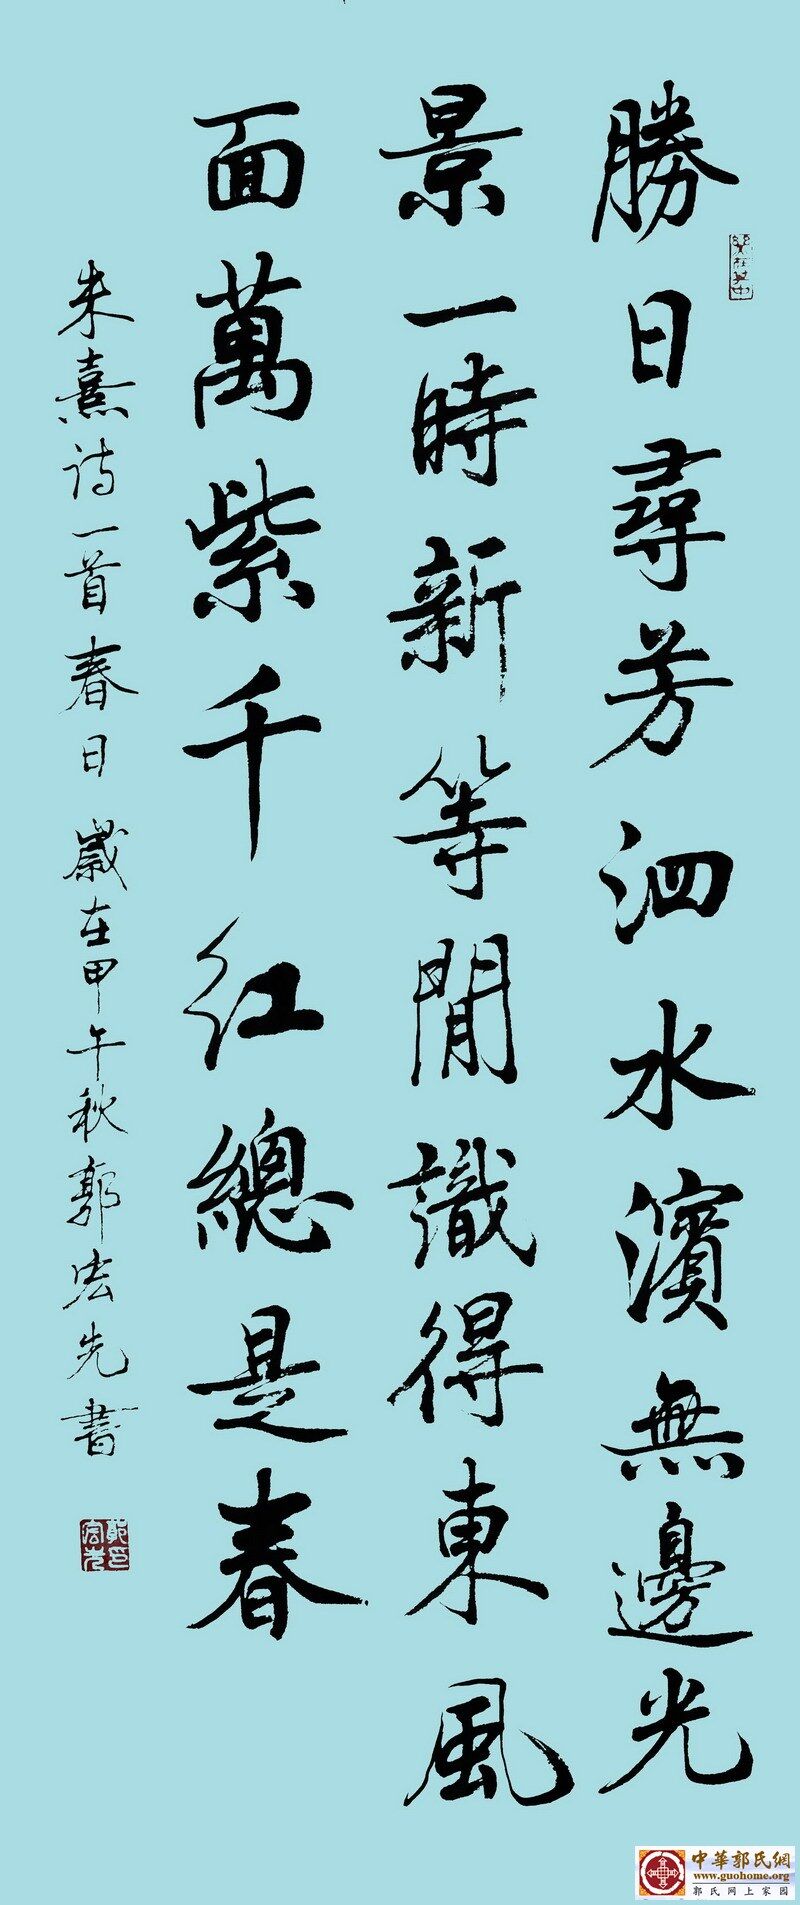 勝日尋芳泗水濱無邊光
景一時新等閒識得東風
面萬紫千红總是春
朱熹诗一首春日 歲在甲午秋郭宏先書
中華郭氏網
www.guohome.org
郭氏网上家园